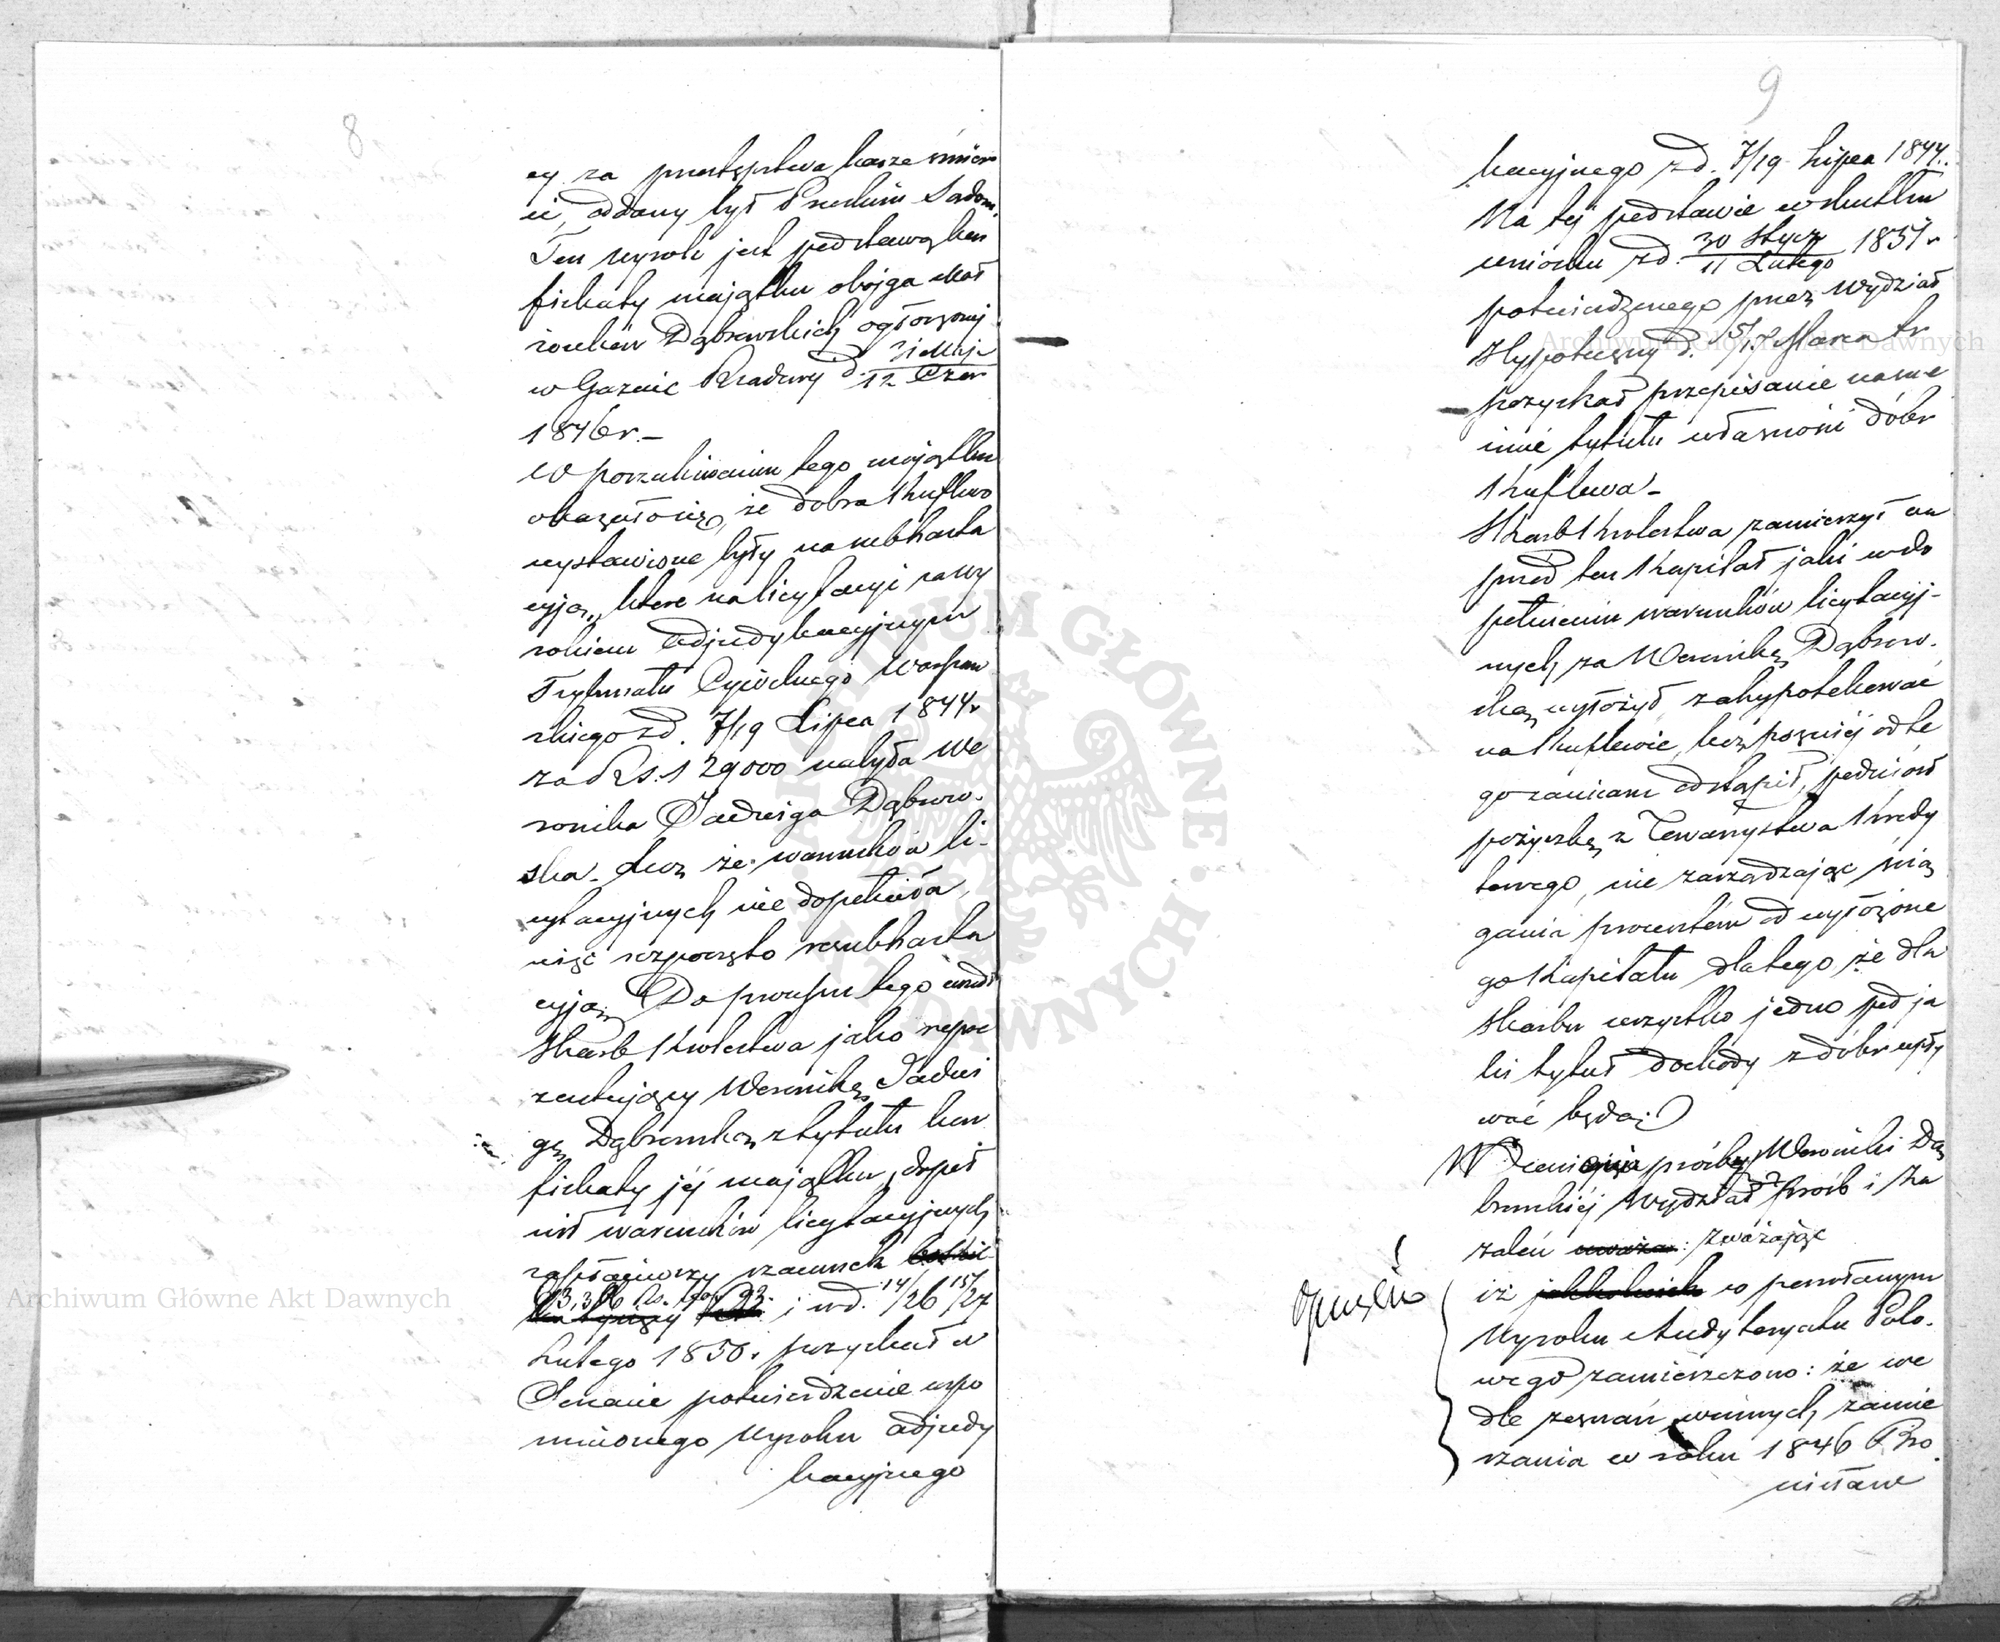 8
cy za przestępstwa karze śmier
ci, oddany był Pruskim Sądom.
Ten wyrok jest podstawą kon
fiskaty majątku obojga Mał
żonków Dąbrowskich ogłoszonej
w Gazecie Rządowej d. 31 Maja / 12 Czer
1846 r. –
W poszukiwaniu tego majątku
okazało się, że dobra Kuflewo
wystawione były na subhasta
cyją, które na licytacyi i wy
rokiem adjudykacyjnym
Trybunału Cywilnego Warszaw
skiego z d. 7/19 Lipca 1844 r
za Rs. 129000 nabyła We
ronika Jadwiga Dąbrow-
ska. Lecz że warunków li-
cytacyjnych nie dopełniła,
więc rozpoczęto resubhasta
cyją. Do procesu tego
Skarb Królestwa jako repre
zentujący Weronikę Jadwi
gę Dąbrowską z tytułu kon
fiskaty jéj majątku, dopeł
nił warunków licytacyjnych
zapłaciwszy szacunek
i w d. 14/26 15/27
Lutego 1850 r pozyskał w
Senacie potwierdzenie wspo
mnionego wyroku adjudy
kacyjnego
9
kacyjnego z d. 7/19 Lipca 1844.
Na tej podstawie w skutku
wniosku z d. 30 Stycz / 11 Lutego 1851 r
potwierdzonego przez Wydział
Hypoteczny d. 5/17 Marca tr
pozyskał przepisanie na swe
imie tytułu własności dóbr
Kuflewa –
Skarb Królestwa zamierzył na
przód ten Kapitał jaki w do
pełnieniu warunków licytacyj-
nych za Weronikę Dąbrow-
ską wyłożył zahypotekować
na Kuflewie, lecz poźniéj od te
go zamiaru odstąpił, podniósł
pożyczkę z Towarzystwa Kredy
towego, nie zarządzając ścią
gania procentów od wyłożone
go Kapitału dlatego, że dla
Skarbu wszystko jedno pod ja
kim tytuł dochody z dóbr wpły
wać będą.
W prośby Weroniki Dą
browskiéj Wydział Prośb i Za
żaleń uważa: zważając
Opuścić
iż jakkolwiek w powołanym
Wyroku Audytoryatu Polo-
wego zamieszczono: że we
dle zeznań winnych, zamie
szania w roku 1846 Bro
nisław
Archiwum Główne Akt Dawnych
Archiwum Główne Akt Dawnych
ARCHIWUM GŁÓWNE AKT DAWNYCH